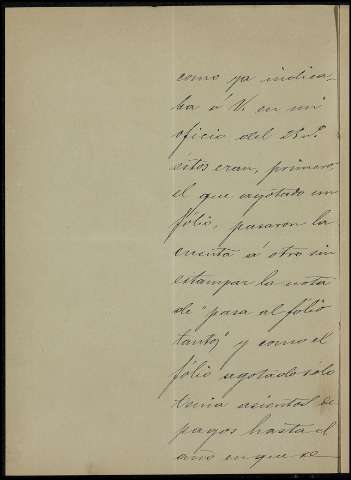 como ya indica-
ba á V. en mi
oficio del
estos eran, primero,
el que agotado un
fólio, pasaron la
cuenta á otro sin
estampar la nota
de "pasa al fólio
tantos," y como el
fólio agotado sólo
tenia asientos de
pagos hasta el
año en que se